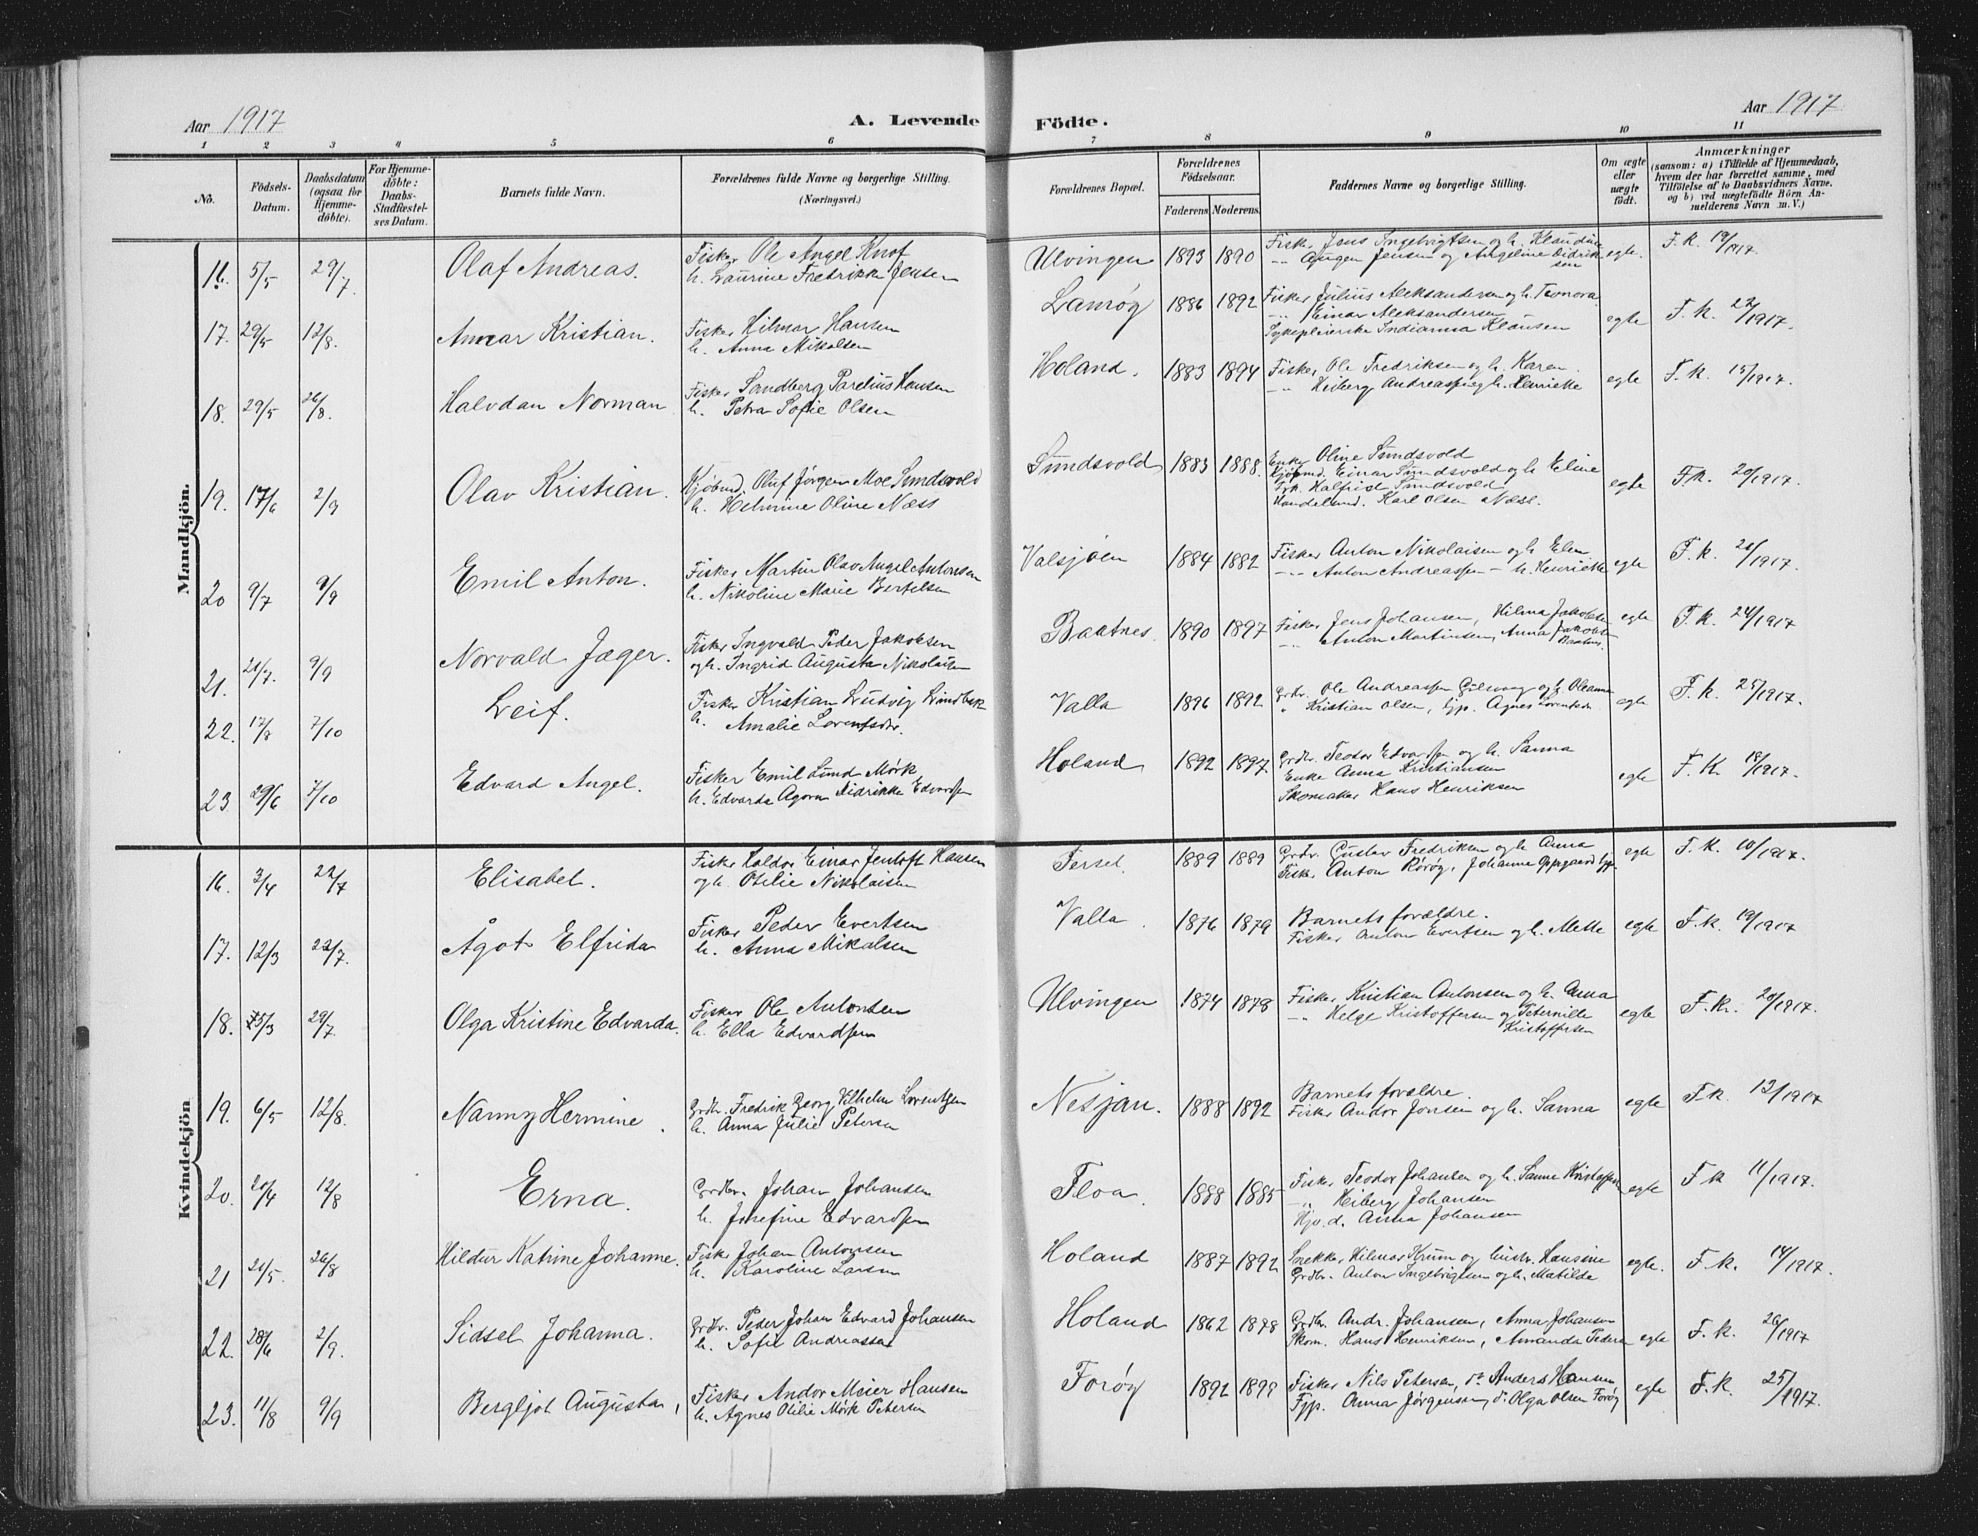 Aar 1917
A. Levende Födte.
Aar 1917
1 2 3 4 5 6 7 8 9 10 11
No.
Födsels-Datum.
Daabsdatum (ogsaa for Hjemme-döbte).
For Hjemme-döbte: Daabs-Stadfæstel-ses Datum.
Barnets fulde Navn.
Forældrenes fulde Navne og borgerlige Stilling.
(Næringsvei.)
Forældrenes Bopæl.
Forældrenes Födselsaar.
Faderens. Moderens.
Faddernes Navne og borgerlige Stilling.
Om ægte eller uægte födt.
Anmærkninger
(saasom: a) i Tilfælde af Hjemmedaab,
hvem der har forrettet samme, med
Tilföielse af to Daabsvidners Navne.
og b) ved uægtefödte Börn An-
melderens Navn m. V.)
Mandkjön.
16. 5/5 29/7 Olaf Andreas. Fisker Ole Angel Knof
h. Laurine Fredrikke Jensen
Ulvingen 1893 1890 Fisker Jens Ingebrigtsen og h. Klaudine
egte. F.k. 19/1917.
17. 29/5 12/8. Anmar Kristian. Fisker Hilmar Hansen
h. Anna Mikalsen
Lamøy 1886 1892 Fisker Julius Aleksandersen og h. Leonora
-"- Einar Aleksandersen
Sykepleierske Indianna Klausen
egte F.k. 22/1917.
18. 29/5 26/8. Halvdan Norman Fisker Sandberg Parelius Hansen
h. Petra Sofie Olsen
Holand. 1883 1894 Fisker Ole Fredriksen og h. Karen.
-"- Heiberg Andreassen og h. Henrikke
egte F.k. 15/1917.
19. 17/6 2/9 Olav Kristian. Kjøbmd. Oluf Jørgen Moe Sundsvold
h. Helmine Oline Næss
Sundsvold 1883 1888. Enke Oline Sundsvold
Kjøbmd. Einar Sundsvold og h. Eline
Frk. Halfrid Sundsvold
Handelsmd. Karl Olsen Næss.
egte F.k. 20/1917.
20 9/7 9/9 Emil Anton. Fisker Martin Olav Angel Antonsen
h. Nikoline Marie Bertelsen
Valsjøen 1884 1882 Fisker Anton Nikolaisen og h. Elen
-"- Anton Andreassen - h. Henrikke
egte F.k. 21/1917.
21. 21/7. 9/9 Norvald Jæger. Fisker Ingvald Peder Jakobsen
og h. Ingrid Augusta Nikolaisen
Baatnes. 1890 1897 Fisker Jens Johansen, Hilma Jakobsen
-"- Anton Martinsen, Anna Jakobsen
Baatnes.
egte F.k. 24/1917
22. 17/8 7/10 Leif. Fisker Kristian Ludvig Lindbæk
h. Amalie Lorentsdtr.
Valla 1896 1892 Grdbr. Ole Andreassen Gilsvaag og h. Oleanna
" Kristian Olsen, Gjp. Agnes Lorentsen
egte F.k. 25/1917.
23 29/6 7/10 Edvard Angel. Fisker Emil Lund Mørk
h. Edvarda Agora Didrikke Edvardsen
Holand 1892 1897 Grdbr. Teodor Edvardsen og h. Sanna
Enke Anna Kristiansen
Skomaker Hans Henriksen
egte F.K. 18/1917.
Kvindekjön
16. 3/4 22/7 Elisabet. Fisker Haldor Einar Jentoft Hansen
og h. Otilie Nikolaisen
Forsel. 1889 1889 Grdbr. Gustav Fredriksen og h. Anna
Fisker Anton Rørøy, Johanne Oppgaard Gjp.
egte F.K. 10/1917.
17. 12/3 22/7. Ågot Elfrida Fisker Peder Evertsen
h. Anna Mikalsen
Valla 1876 1879 Barnets forældre.
Fisker Anton Evertsen og h. Mette
egte F.k. 19/1917
18. 25/3 29/7. Olga Kristine Edvarda. Fisker Ole Antonsen
h. Ella Edvardsen
Ulvingen 1874 1878 Fisker Kristian Antonsen og h. Anna
-"- Helge Kristoffersen og Peternille
Kristoffersen
egte F.k. 20/1917.
19. 6/5 12/8. Nanny Hermine. Grdbr. Fredrik Georg Vilhelm Lorentzen
h. Anna Julie Petersen
Nesjan. 1888 1892 Barnets forældre.
Fisker Andor Jonsen og h. Sanna
egte F.k. 12/1917
20. 20/4 12/8 Erna. Grdbr. Johan Johansen
h. Josefine Edvardsen
Floa. 1888 1885 Fisker Teodor Johansen og h. Sanne Kristoffersen
-"- Heiberg Johansen
Hjv. d. Anna Johansen
egte F.k 11/1917.
21 21/5. 26/8 Hildur Katrine Johanne. Fisker Johan Antonsen
h. Karoline Larsen
Holand 1887 1892 Snekker Hilmar Krum og hustr. Hansine
Grdbr. Anton Ingebrigtsen og h. Matilde
egte. F.k. 14/1917.
22. 28/6 2/9. Sidsel Johanna. Grdbr. Peder Johan Edvard Johansen
h. Sofie Andreassen
Holand 1862 1878 Grdbr. Andr. Johansen, Anna Johansen
Skom. Hans Henriksen, Amanda Peders
egte F.k. 26/1917
23. 11/8 9/9 Bergljot Augusta, Fisker Andor Meier Hansen
h. Agnes Otilie Mørk Petersen
Forøy 1892 1898 Fisker Nils Petersen, do Anders Hansen
Gjp. Anna Jørgensen, do Olga Olsen Forøy
egte F.k. 25/1917.